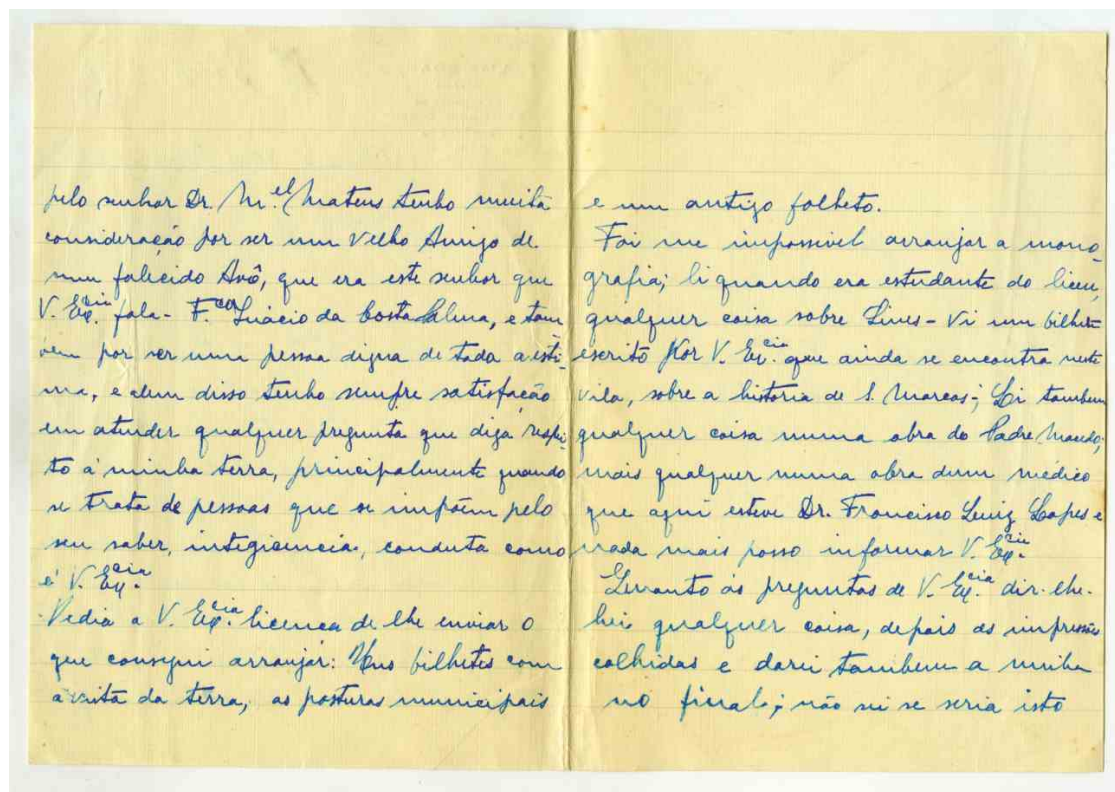 pelo senhor Dr. M.el Mateus tenho muita
consideração por ser um velho Amigo de
meu falecido Avô, que era este senhor que
V. Ex.cia fala - F.co Inácio da Costa, e tam
bem por ser uma pessoa digna de toda a esti-
ma, e alem disso tenho sempre satisfação
em atender qualquer pregunta que diga respei
to á minha terra, principalmente quando
se trata de pessoas que se impõem pelo
seu saber, inteligiencia, conduta como
é V. Ex.cia
Pedia a V. Ex.cia licença de lhe enviar o
que consegui arranjar: Uns bilhetes com
a vista da terra, as posturas municipais
e um antigo folheto.
Foi me impossivel arranjar a mono-
grafia; li quando era estudante do liceu,
qualquer coisa sobre Sines - Vi um bilhete
escrito por V. Ex.cia que ainda se encontra nesta
vila, sobre a historia de S. Marcos -; Li tambem
qualquer coisa numa obra do Padre Macedo;
mais qualquer numa obra dum médico
que aqui esteve Dr. Francisco Luiz Lopes e
nada mais posso informar V. Ex.cia
Quanto ás preguntas de V. Ex.cia dir-lhe-
hei qualquer coisa, depois as impressões
colhidas e darei tambem a minha
no final; não sei se seria isto